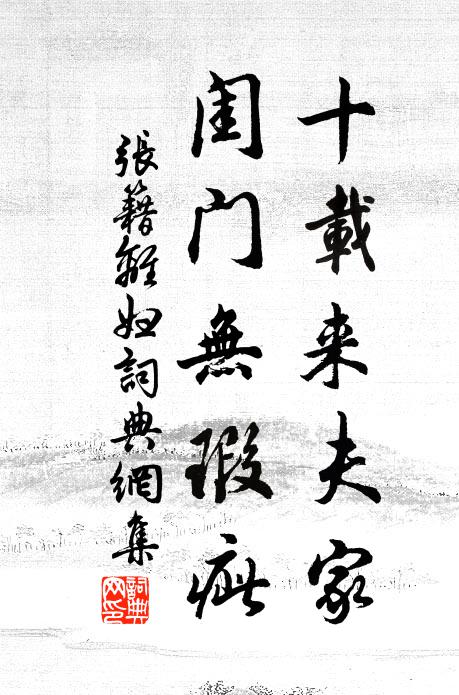 十載来夫家
闺门無瑕疵
張籍離妇詞典網集
詞典网印